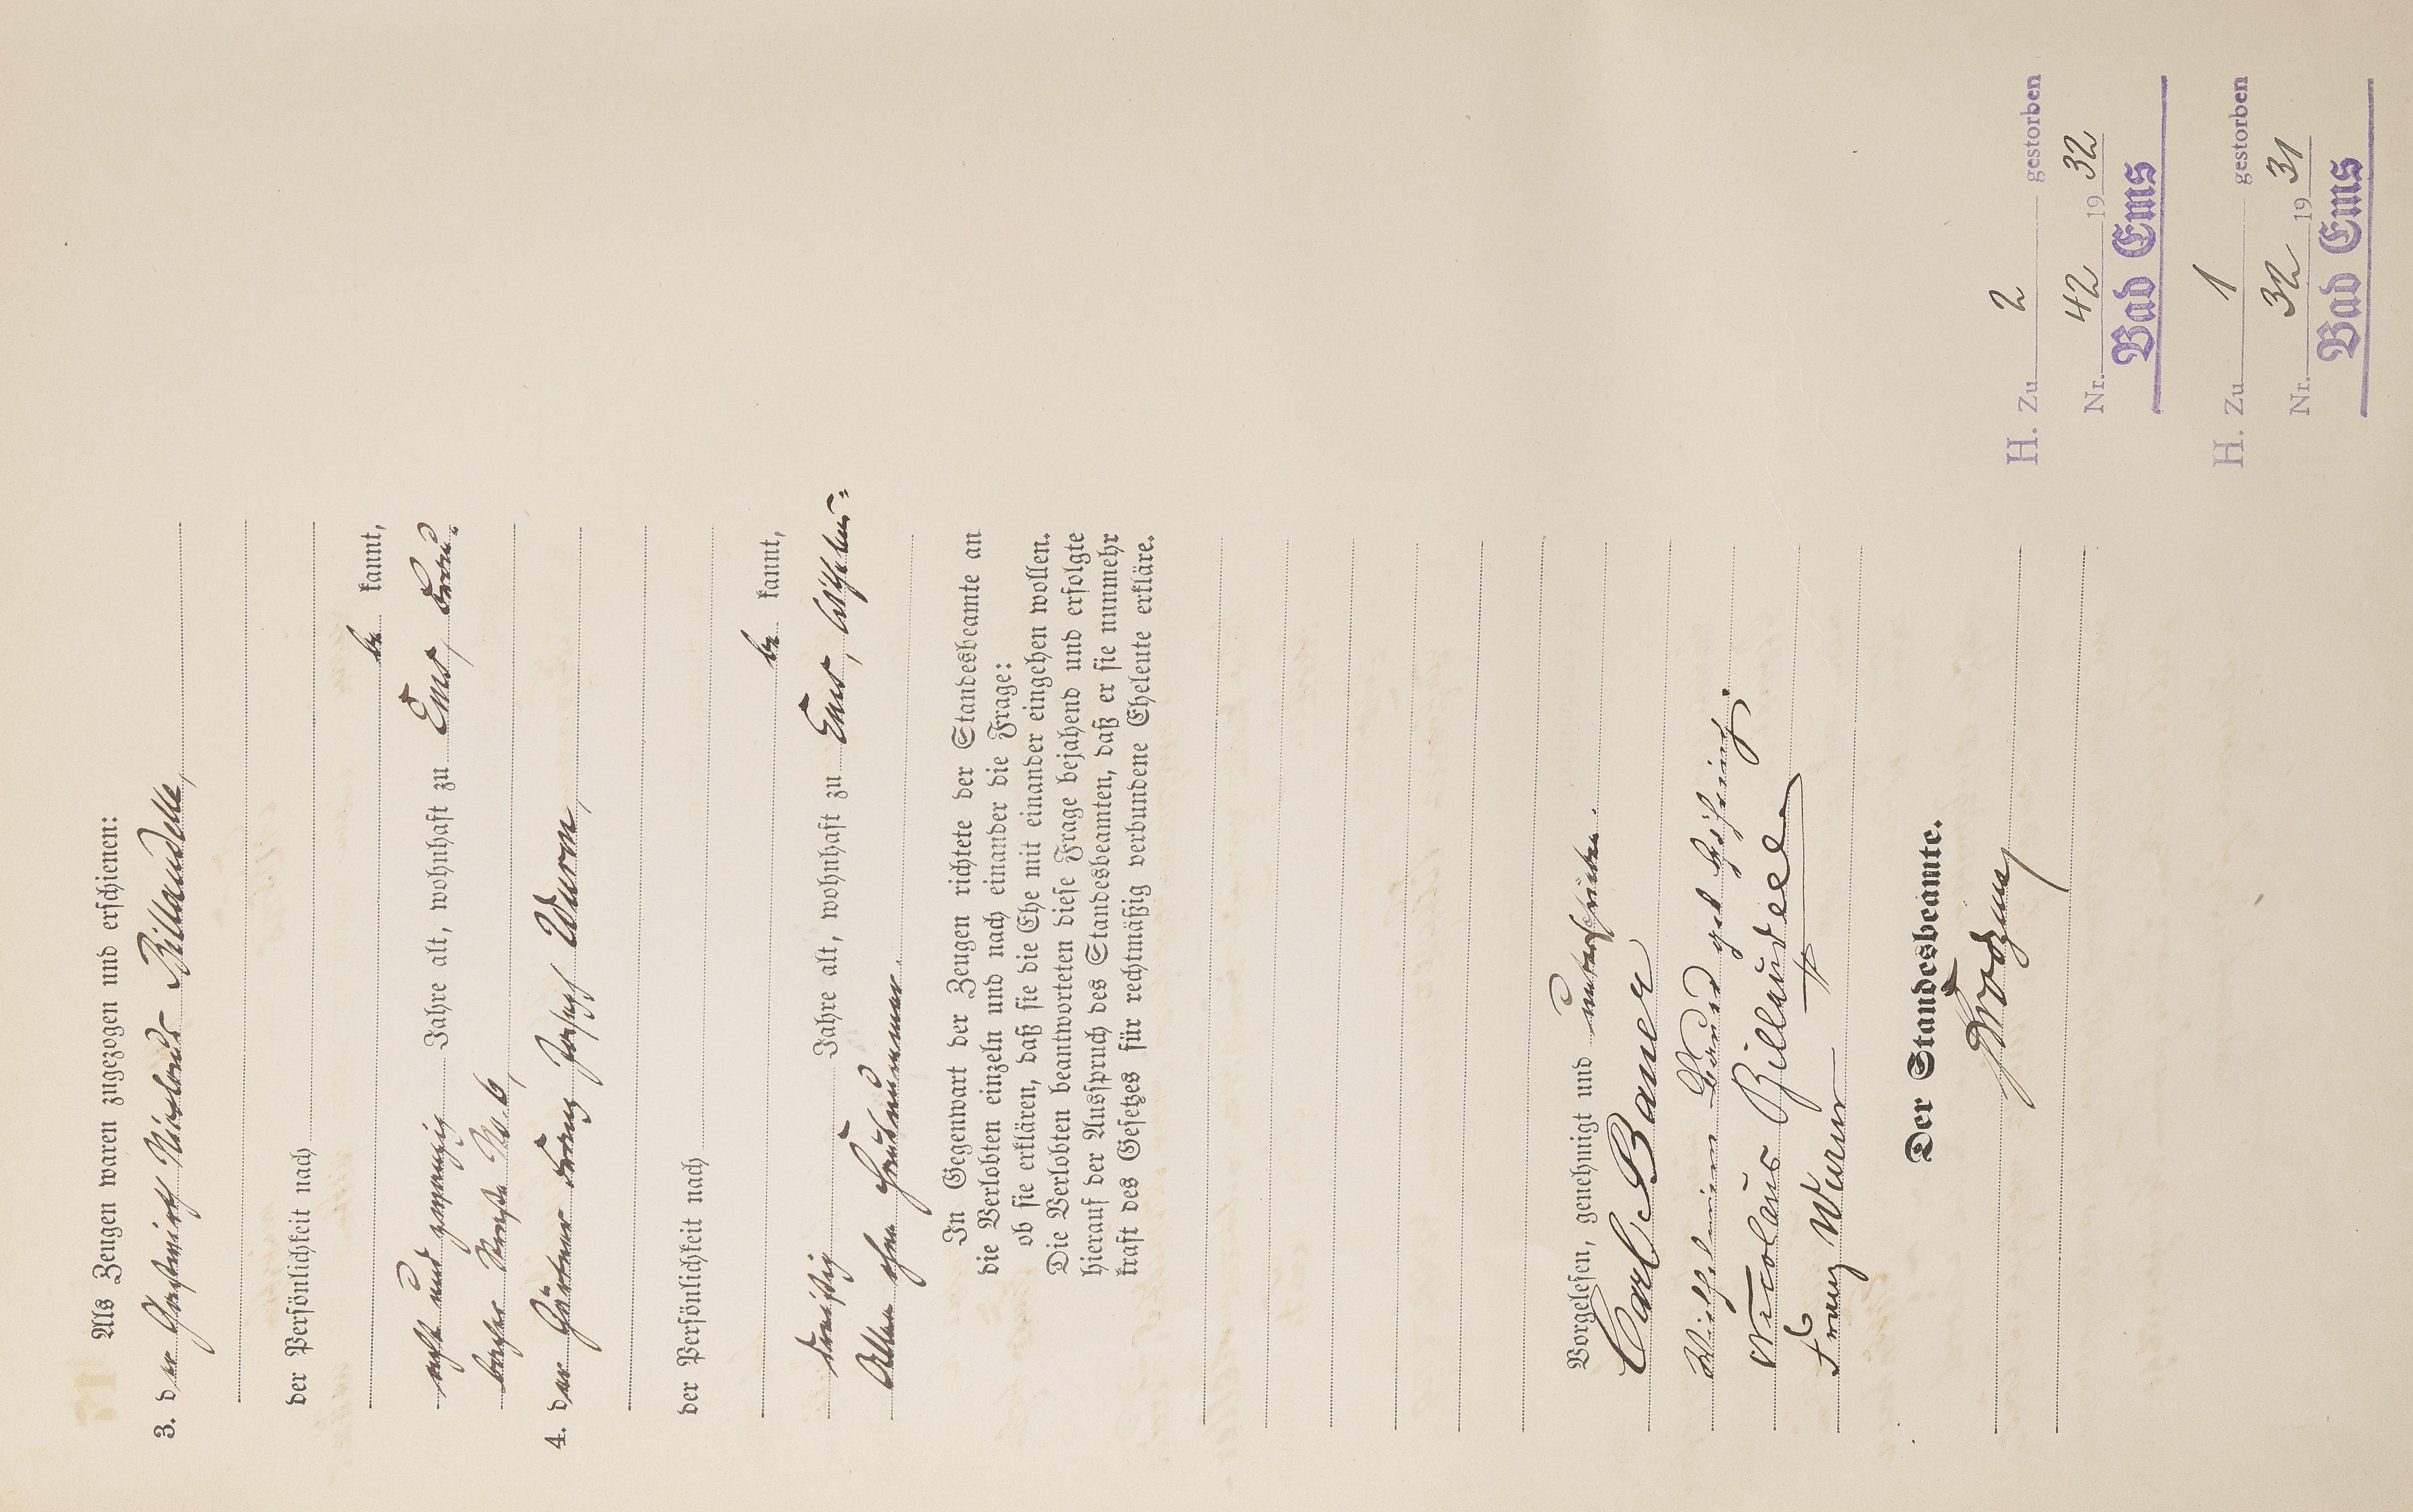 Als Zeugen waren zugezogen und erschienen:
3. der Gastwirth Nicolaus Billaudelle,
der Persönlichkeit nach
be kannt,
acht und zwanzig Jahre alt, wohnhaft zu Ems, Brau-
bacher Straße No. 6,
4. der Gärtner Franz Josef Wurm,
der Persönlichkeit nach
be kannt,
dreißig Jahre alt, wohnhaft zu Ems, Wilhelms-
Allee ohne Hausnummer.
In Gegenwart der Zeugen richtete der Standesbeamte an
die Verlobten einzeln und nach einander die Frage:
ob sie erklären, daß sie die Ehe mit einander eingehen wollen.
Die Verlobten beantworteten diese Frage bejahend und erfolgte
hierauf der Ausspruch des Standesbeamten, daß er sie nunmehr
kraft des Gesetzes für rechtmäßig verbundene Eheleute erkläre.
Vorgelesen, genehmigt und unterschrieben.
Carl Bauer
Wilhelmine Bauer geb
Nicolaus Billaudelle
Franz Wurm
Der Standesbeamte.
H. Zu 2 gestorben
Nr. 42 19 32
Bad Ems
H. Zu 1 gestorben
Nr. 32 19 31
Bad Ems